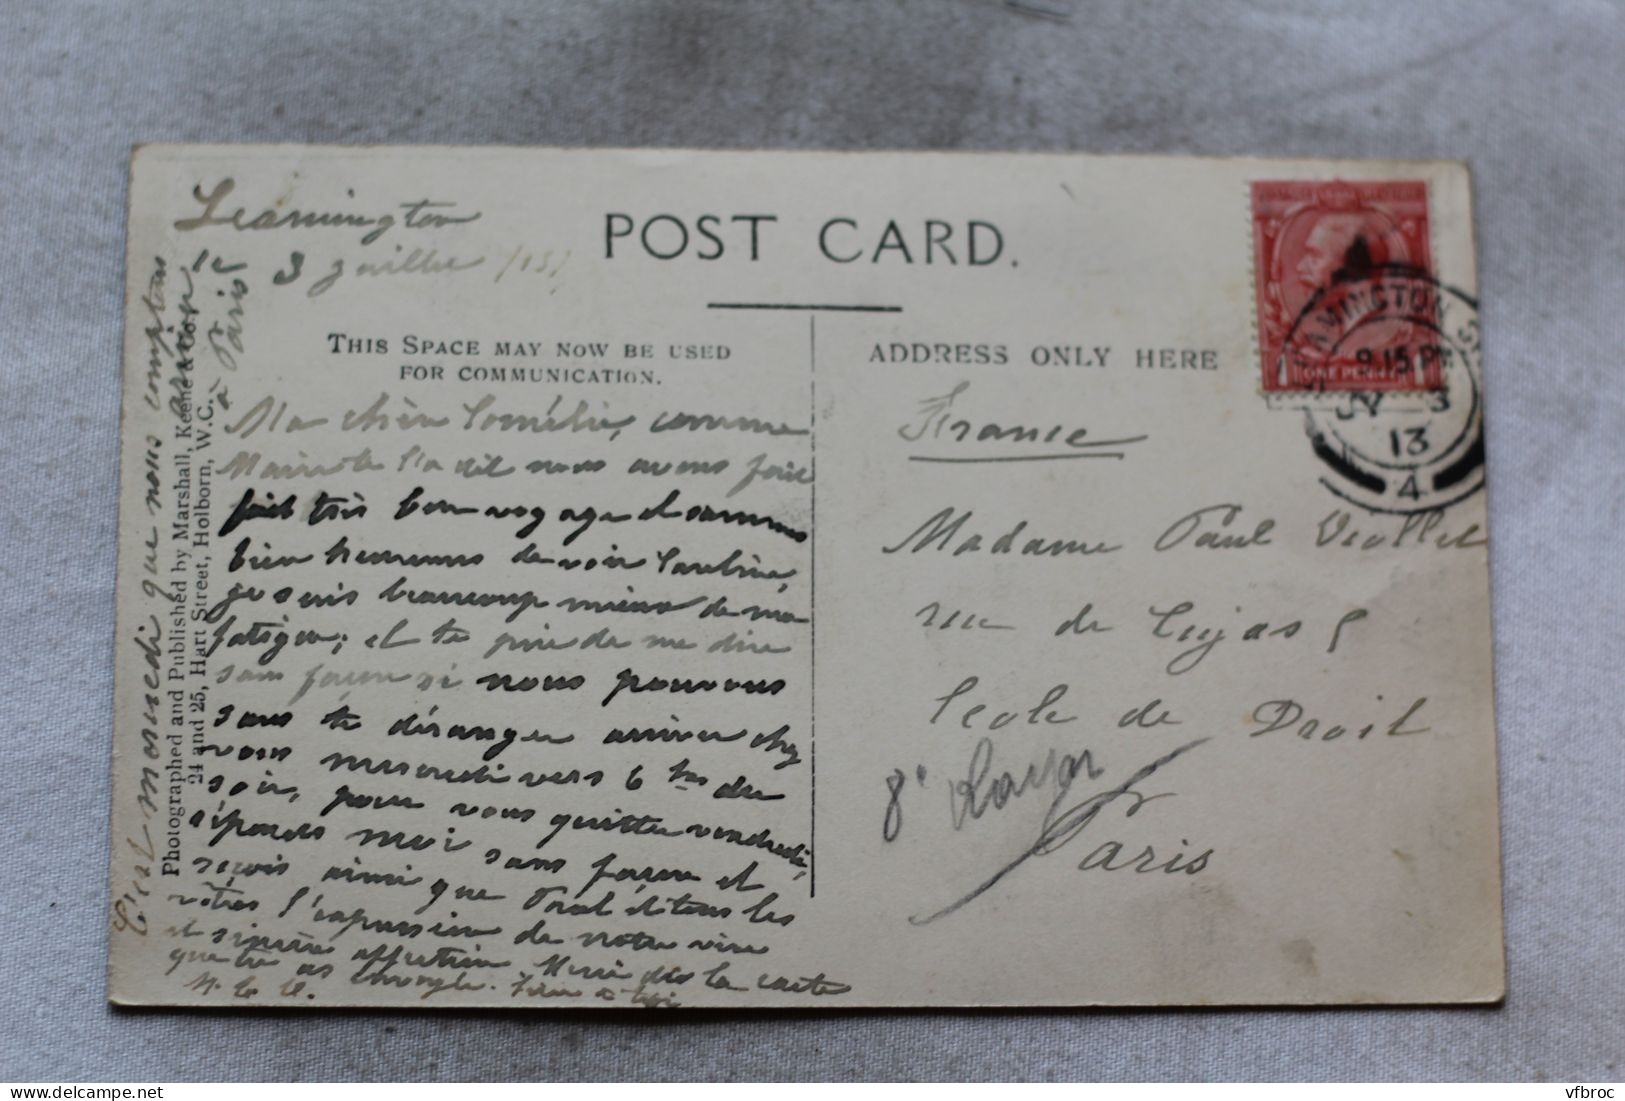 POST CARD.
Leamington
3 Juillet 1913
THIS SPACE MAY NOW BE USED
FOR COMMUNICATION.
ADDRESS ONLY HERE
Ma chère Cornélie, comme
l'a dit nous avons fait
fait très bon voyage et sommes
bien heureuses de voir Caroline,
je suis beaucoup mieux de ma
fatigue; et te prie de me dire
sans façon si nous pouvons
sans te déranger arriver chez
vous mercredi vers 6 hrs du
soir, pour vous quitter vendredi,
réponds moi sans façon et
reçois ainsi que Paul et tous les
vôtres l'expression de notre vive
et sincère affection Merci de la carte
que tu as envoyée.
C'est mercredi que nous comptons
arriver
à Paris
Photographed and Published by Marshall, Keene & Co.,
24 and 25, Hart Street, Holborn, W.C.
France
Madame Paul Viollet
rue de Cujas 5
Ecole de Droit
Paris
8e
ONE PENNY
LEAMINGTON SPA
9.15 PM
JY 3
13
4
vfbroc